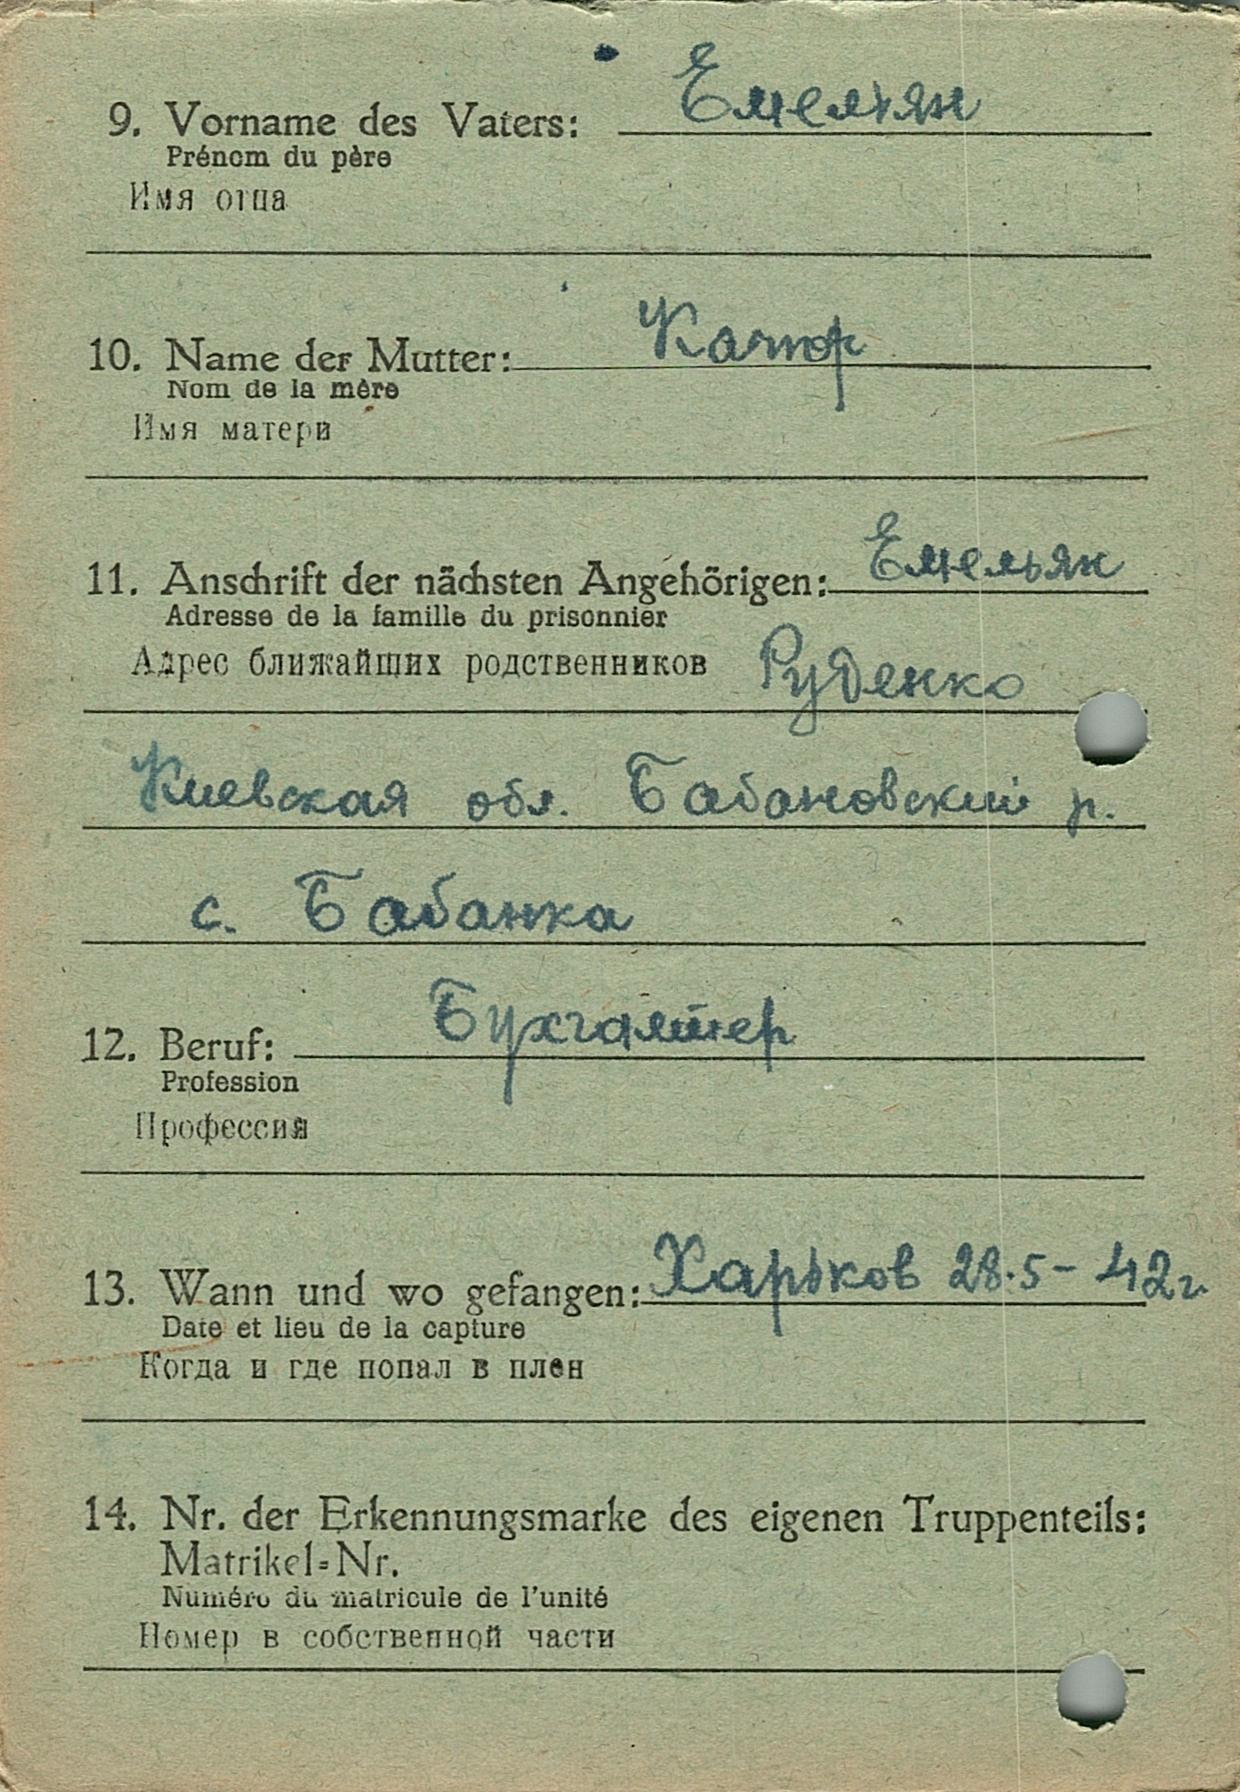 9. Vorname des Vaters: Емельян
Prénom du père
Имя отца
10. Name der Mutter:
Nom de la mère
Имя матери
11. Anschrift der nächsten Angehörigen: Емельян
Adresse de la famille du prisonnier
Адрес ближайших родственников Руденко
Киевская обл. Бабановский р.
с. Бабанка
12. Beruf: Бухгалтер
Profession
Профессия
13. Wann und wo gefangen: Харьков 28.5-42г
Date et lieu de la capture
Когда и где попал в плен
14. Nr. der Erkennungsmarke des eigenen Truppenteils:
Matrikel=Nr.
Numéro du matricule de l'unité
Номер в собственной части